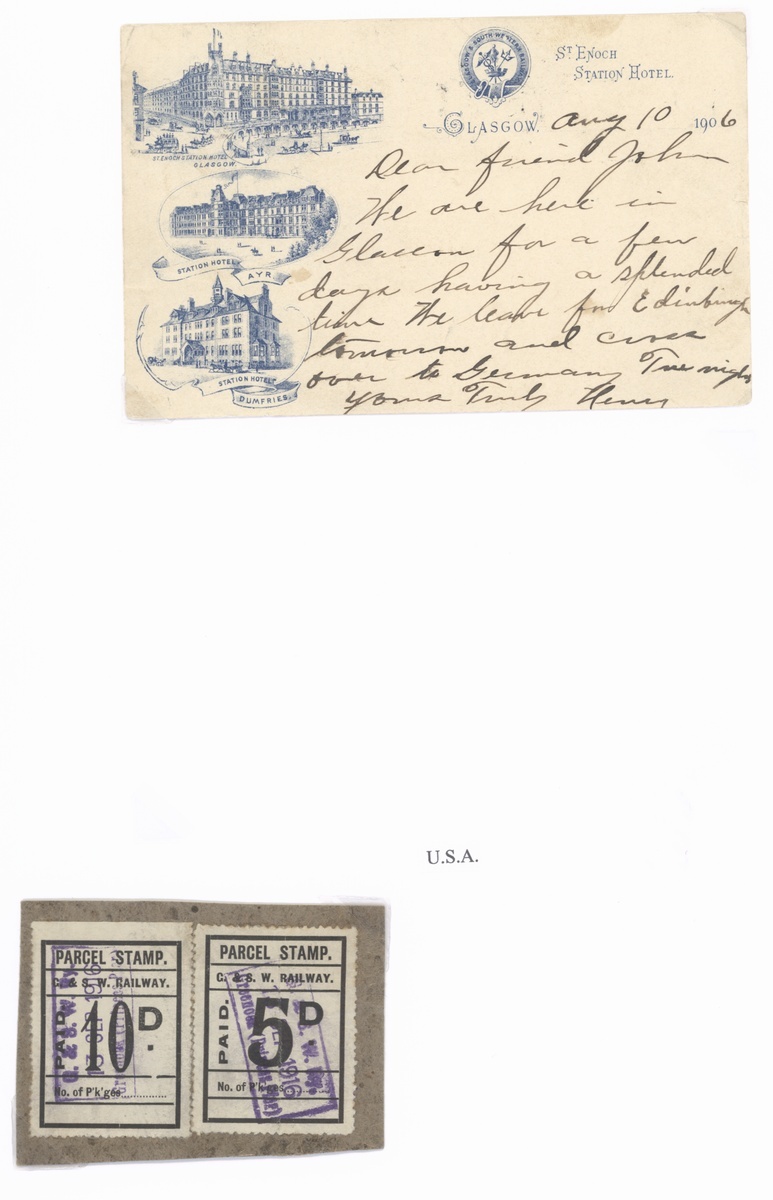 ST. ENOCH STATION HOTEL
GLASGOW.
STATION HOTEL
AYR
STATION HOTEL
DUMFRIES.
GLASGOW & SOUTH WESTERN RAILWAY
ST ENOCH
STATION HOTEL.
GLASGOW. Aug 10 1906
Dear friend John
We are here in
Glascow for a few
days having a splended
time We leave for Edinburgh
tomorrow and cross
over to Germany Tue night
Yours Truly Henry
U.S.A.
PARCEL STAMP.
G. & S. W. RAILWAY.
PAID.
10D.
No. of P'k'ges
G. & S. W. Ry.
13 SEP 1916
PARCEL STAMP.
G. & S. W. RAILWAY.
PAID.
5D.
No. of P'k'ges
W. Ry.
1916